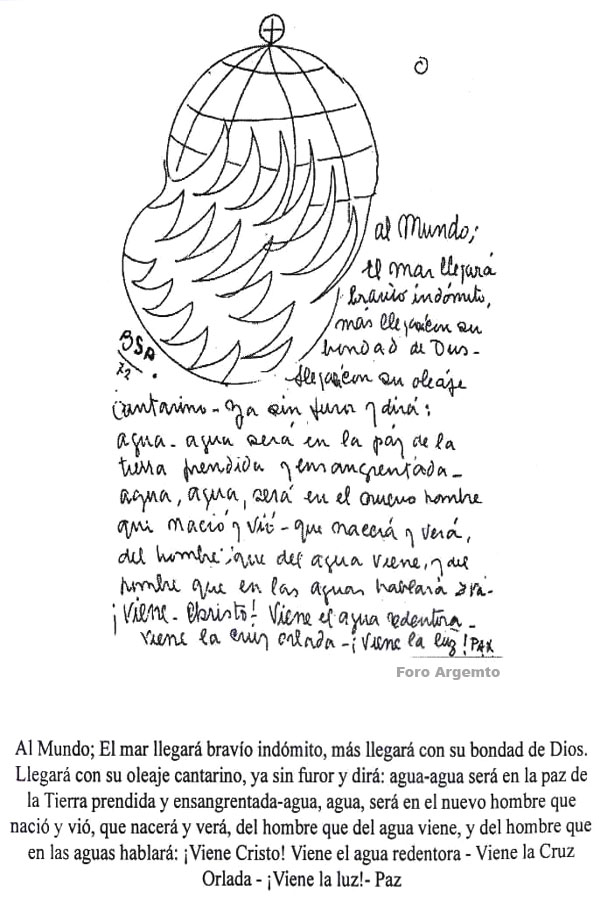 al Mundo;
El mar llegará
bravio indómito,
más llegará con su
bondad de Dios-
llegará con su oleaje
BSP
72
cantarino - ya sin furor y dirá:
agua - agua será en la paz de la
tierra prendida y ensangrentada -
agua, agua, será en el nuevo hombre
que nació y vió - que nacerá y verá,
del hombre que del agua viene, y del
hombre que en las aguas hablará
¡Viene - Christo! Viene el agua redentora -
viene la cruz orlada - ¡viene la luz! PAX
Foro Argemto
Al Mundo; El mar llegará bravío indómito, más llegará con su bondad de Dios.
Llegará con su oleaje cantarino, ya sin furor y dirá: agua-agua será en la paz de
la Tierra prendida y ensangrentada-agua, agua, será en el nuevo hombre que
nació y vió, que nacerá y verá, del hombre que del agua viene, y del hombre que
en las aguas hablará: ¡Viene Cristo! Viene el agua redentora - Viene la Cruz
Orlada - ¡Viene la luz!- Paz